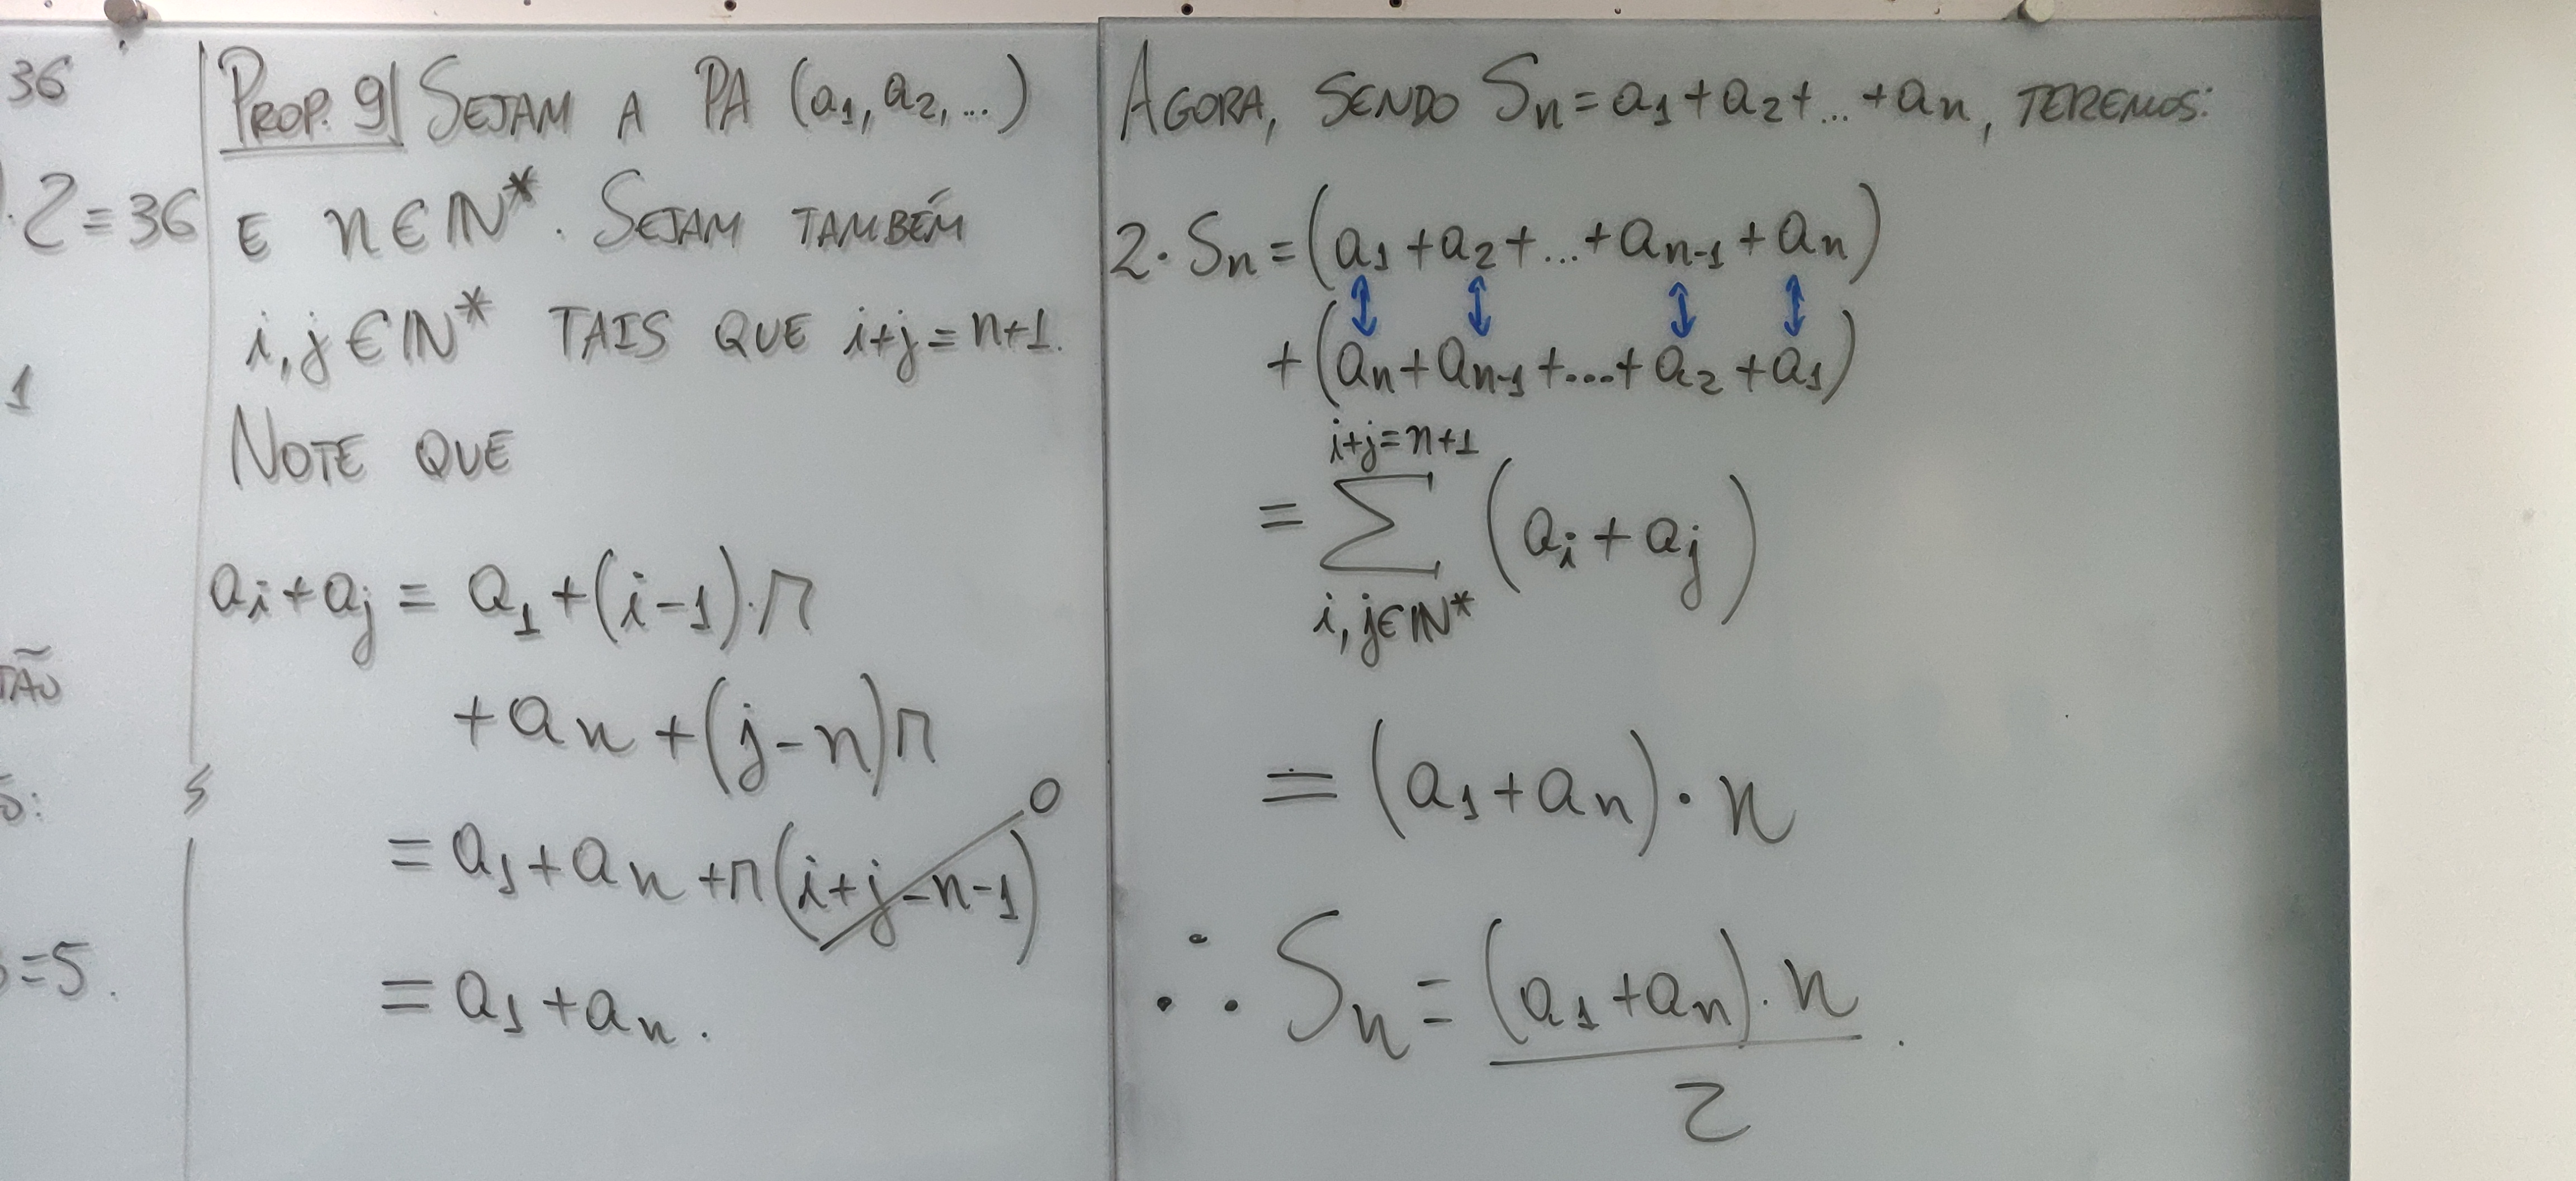 36
2=36
1
TÃO
=5.
PROP. 9| SEJAM A PA (a₁, a₂, ...)
E n∈ℕ*. SEJAM TAMBÉM
i, j∈ℕ* TAIS QUE i+j=n+1.
NOTE QUE
aᵢ+aⱼ = a₁+(i-1)·r
+aₙ+(j-n)r
=a₁+aₙ+r(i+j-n-1) 0
=a₁+aₙ.
AGORA, SENDO Sₙ=a₁+a₂+...+aₙ, TEREMOS:
2·Sₙ=(a₁+a₂+...+aₙ₋₁+aₙ)
+(aₙ+aₙ₋₁+....+a₂+a₁)
i+j=n+1
= ∑ (aᵢ+aⱼ)
i, j∈ℕ*
=(a₁+aₙ)·n
∴ Sₙ=(a₁+aₙ)·n.
2